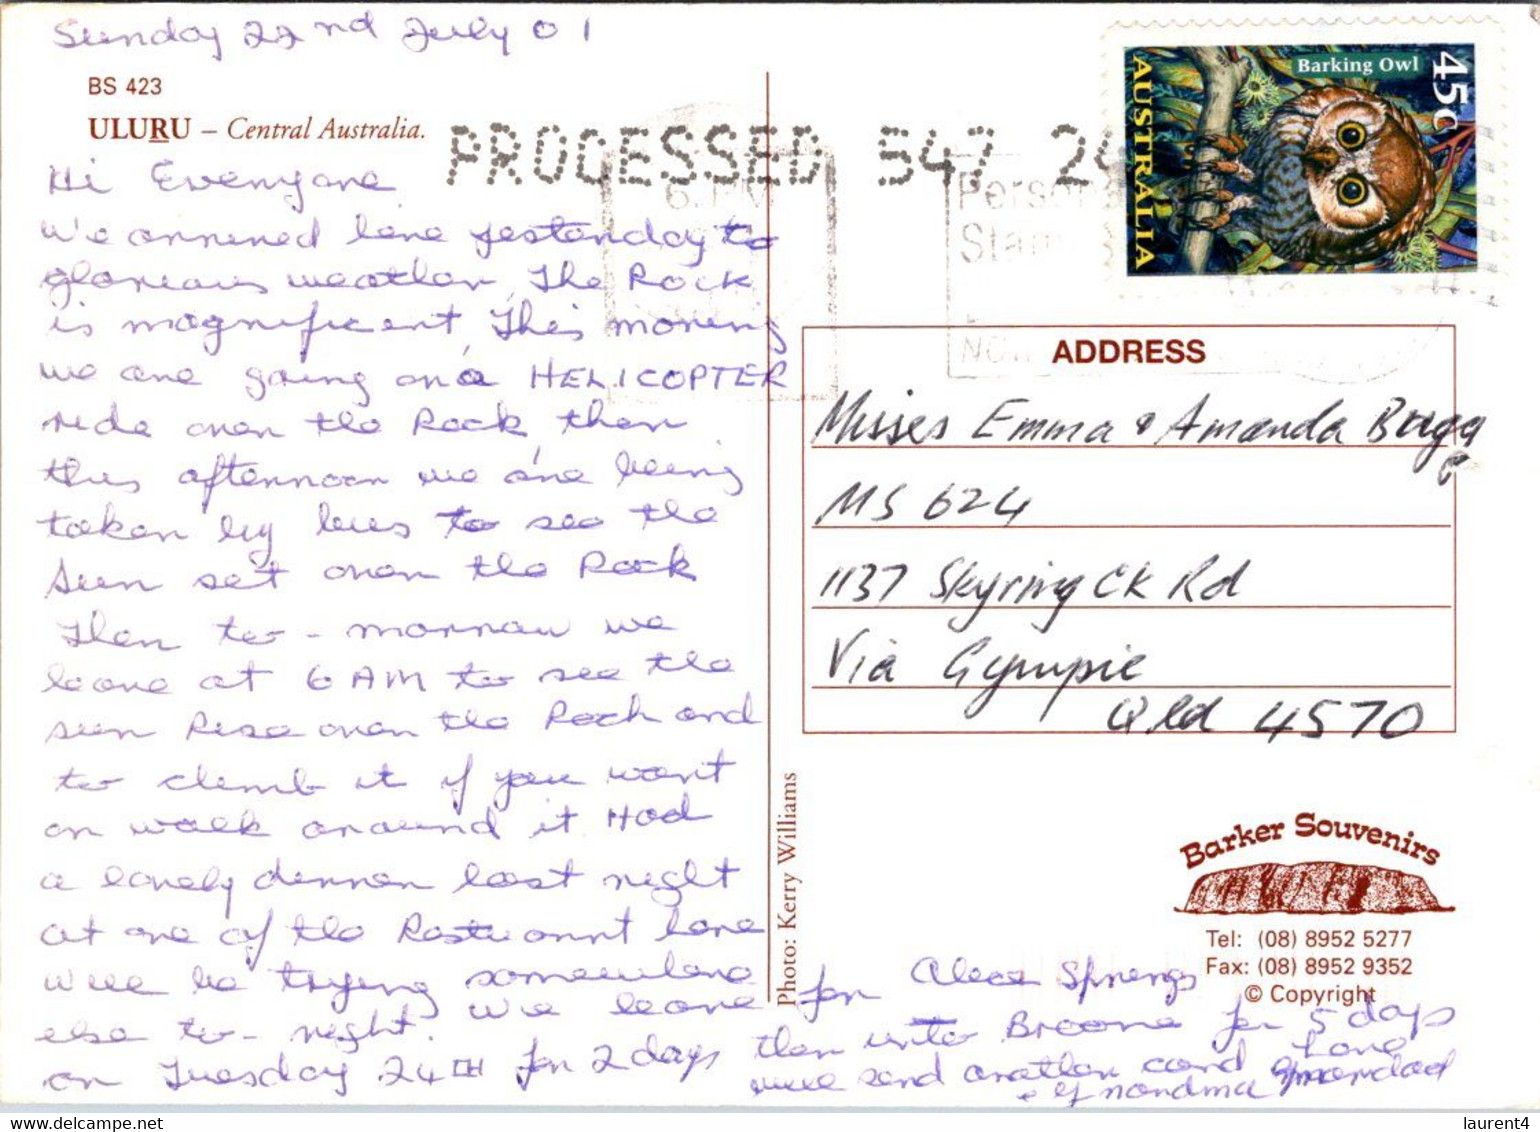 Sunday 22nd July 01
BS 423
ULURU – Central Australia.
Hi Everyone
We arrived here yesterday to
glorious weather, The Rock
is magnificent, This moring
we are going on a HELICOPTER
ride over the Rock, then
this afternoon we are being
taken by bus to see the
Sun set over the Rock
Then to-morrow we
leave at 6 AM to see the
sun Rise over the Rock and
to climb it if you want
or walk around it. Had
a lovely dinner last night
at one of the Resturannt here
will be trying somewhere
else to-night. We leave for Alice Springs
on Tuesday 24TH for 2 days then into Broome for 5 days
will send another card Love
Grandma & Grandad
PROCESSED 547 24
Persona
Stam
45c
Barking Owl
AUSTRALIA
ADDRESS
Misses Emma & Amanda Bragg
MS 624
1137 Skyring Ck Rd
Via Gympie
Qld 4570
Photo: Kerry Williams
Barker Souvenirs
Tel: (08) 8952 5277
Fax: (08) 8952 9352
© Copyright
delcampe.net
laurent4